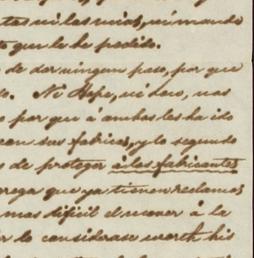 tas ni las unas, ni mando
to que le he pedido.
de dar ningun paso, por que
do. Ni Hope, ni hoco, nos
o por que á ambos les ha ido
con sus fabricas, y lo segundo
s de proteger á los fabricantes
prega que ya tienen reclamos
mas dificil el mover á la
do considerase worth his